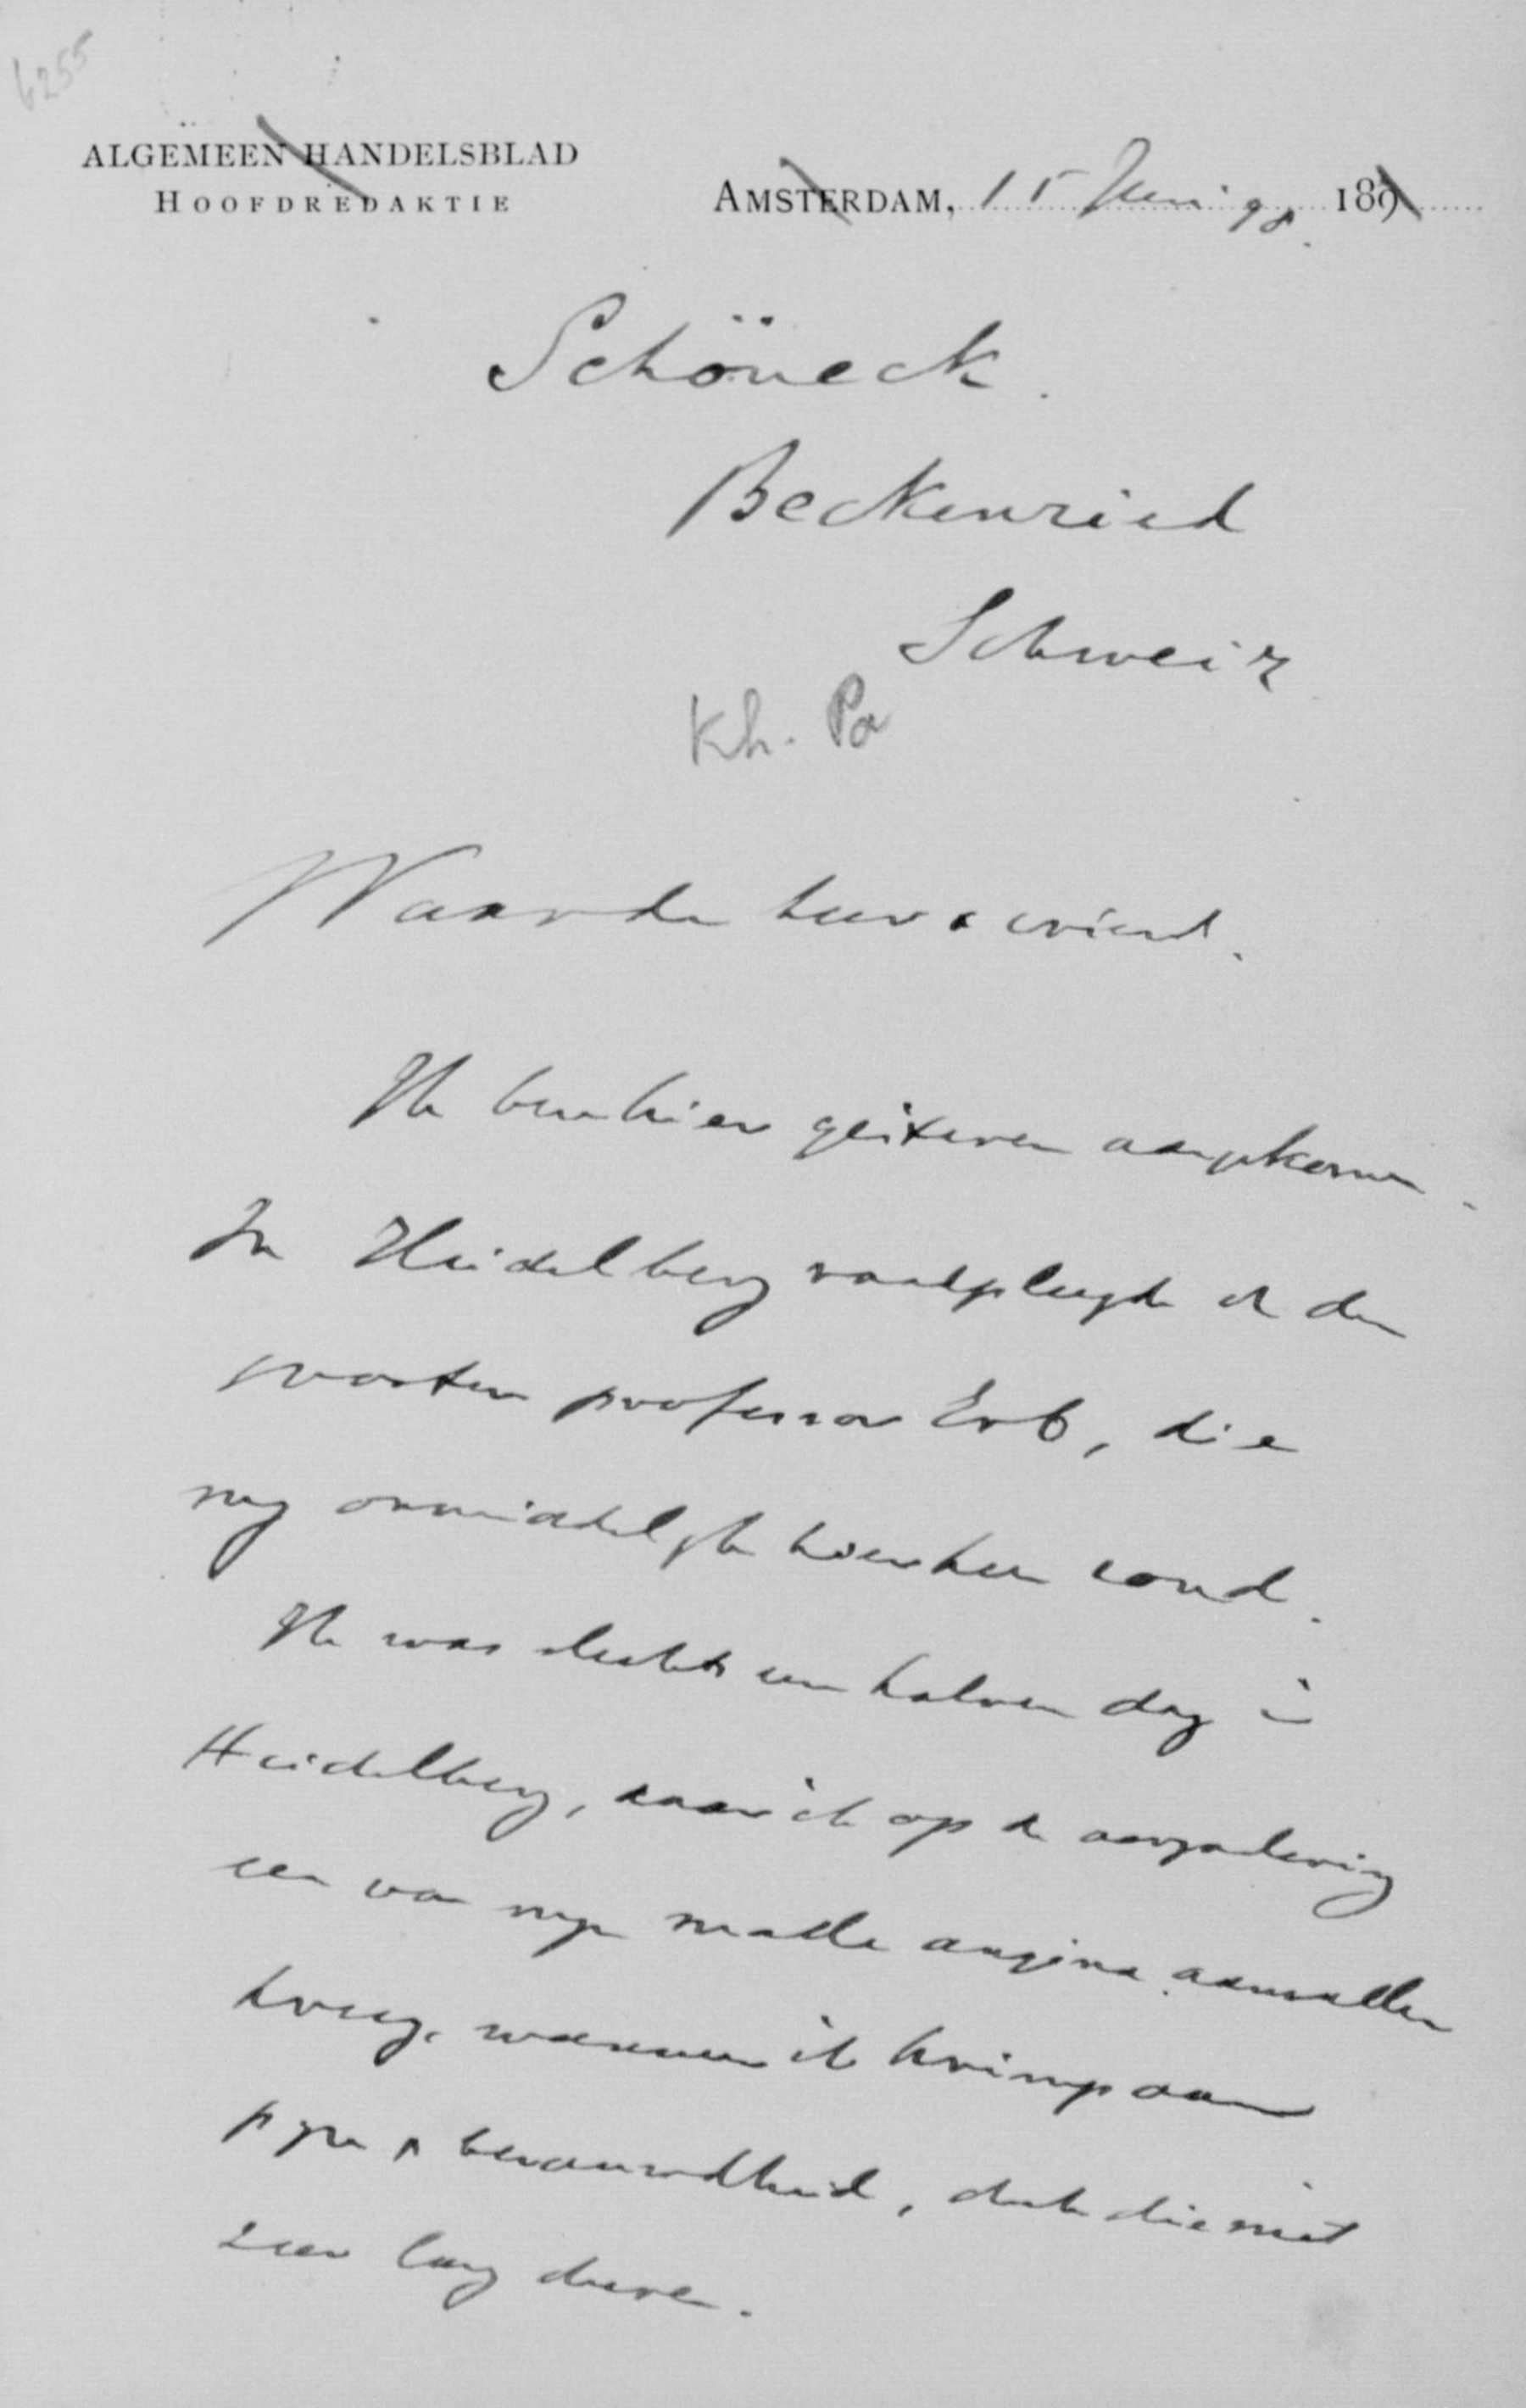 6255
ALGEMEEN HANDELSBLAD
HOOFDREDAKTIE
AMSTERDAM, 15 Juni 98. 189
Schöneck.
Beckenried
Schweiz
Kh. Pa
Waarde heer & vriend.
Ik ben hier gisteren aangekomen.
In Heidelberg raadpleegde ik den
grooten professor Erb, die
mij onmiddelijk hierheen zond.
Ik was slechts een halven dag in
Heidelberg, waar ik op de
een van mijn malle angina aanvallen
kreeg, wanneer ik krimp van
pijn & benauwdheid, doch die niet
zeer lang duren.